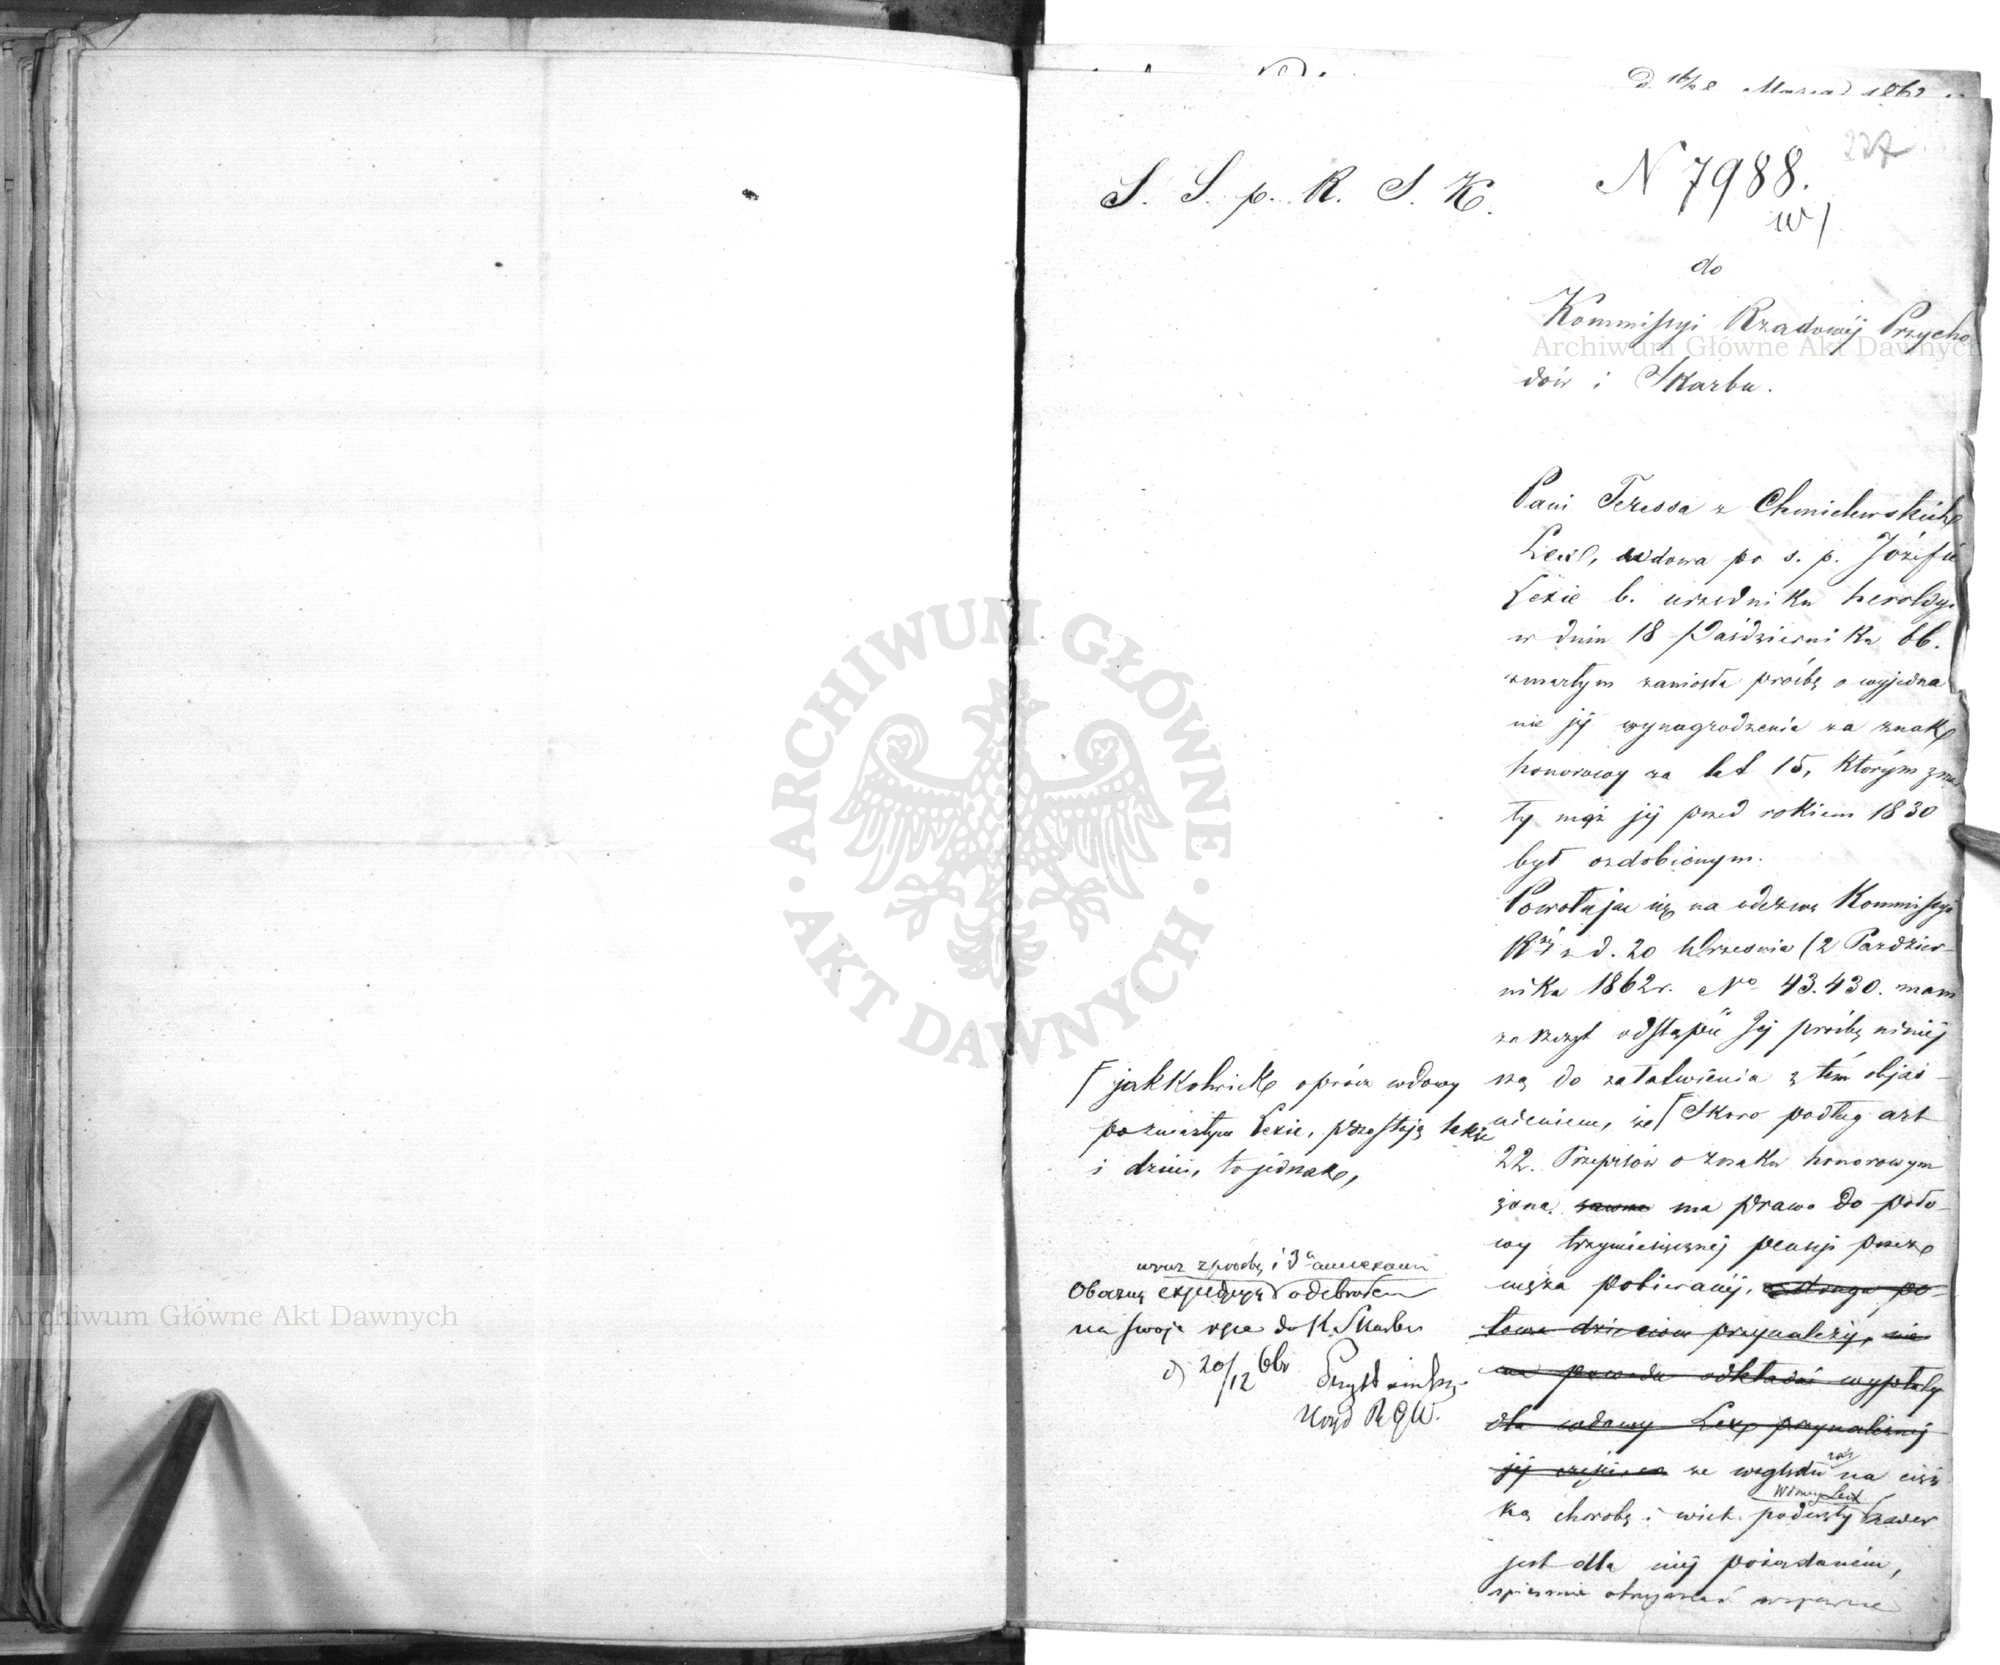 d. 16/28 Marca 1862
227
N 7988.
S. S. p. R. S. K.
w/
do
Kommissyi Rządowéj Przycho
dów i Skarbu.
Pani Teressa z Chmielewskich
Lexe, wdowa po s. p. Józefie
Lexie b. urzedniku heroldyi
w dniu 18 Października bb.
zmarłym zaniosła prośbę o wyjedna
nie jéj wynagrodzenia za znak
honorowy za lat 15, którym zmar
ły mąż jéj przed rokiem 1830
był ozdobionym.
Powołując się na odezwę Kommissyi
Rzéj z d. 20 Września (2 Paździer-
nika 1862r. No 43.430. mam
zaszczyt odstąpić Jéj prośbę niniej
szą do załatwienia z tém objaś-
nieniem, że Skoro podług art
22. Przepisów o znaku honorowym
żona ma prawo do poło-
wy trzymiesięcznéj pensji przez
męża pobieranéj, a druga po-
łowa dzieciom przynależy, nie
ma powodu odkładać wypłaty
dla wdowy Lexe przynależnéj
jéj części, ze względu zaś na cięż
ką chorobę i wiek podeszły Wdowy Lexe
jest dla niéj pożądaniem,
spiesznie otrzymać wsparcie
jakkolwiek oprócz wdowy
po zmarłym Lexie, pozostają także
i dzieci, to jednak,
wraz z prośbą i 3a annexami
Obecną expedycją odebrałem
na swoje ręce do K. Skarbu
d 20/12 6br
Urzęd R G W.
Archiwum Główne Akt Dawnych
Archiwum Główne Akt Dawnych
ARCHIWUM GŁÓWNE
AKT DAWNYCH